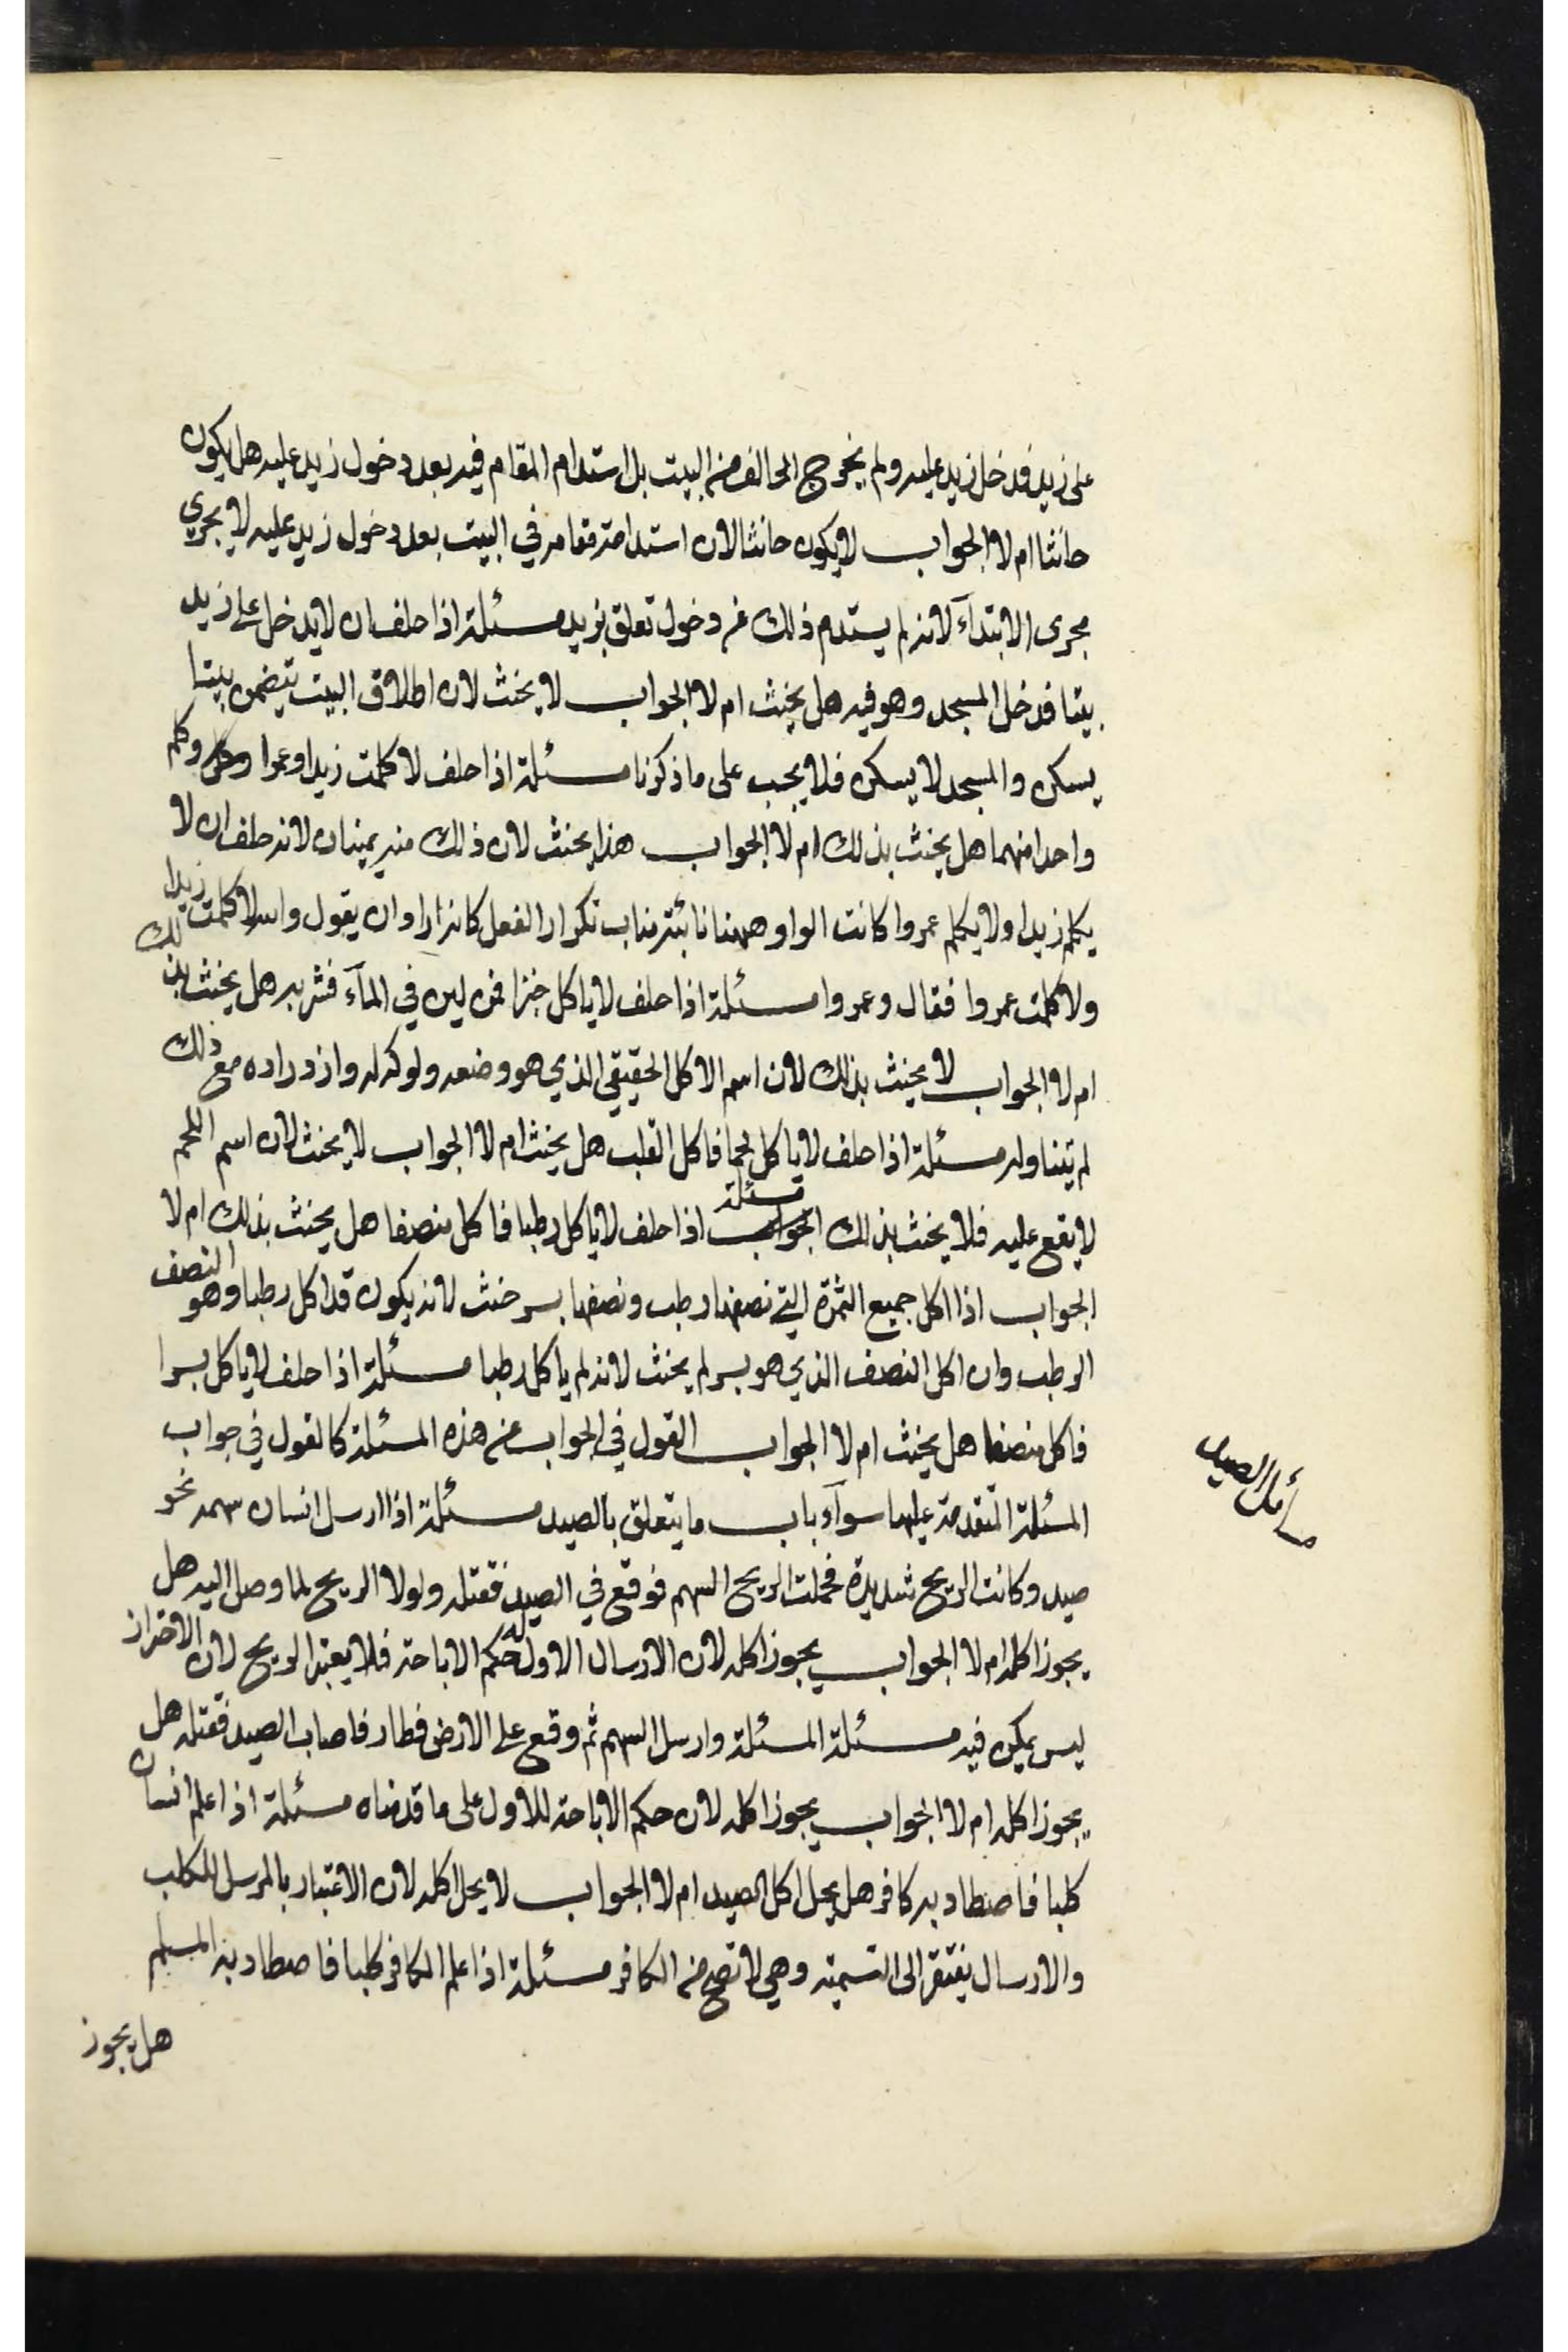 على زيد فدخل زيد عليه ولم يخرج الحالف من البيت بل استدام المقام فيه بعد دخول زيد عليه هل يكون
حانثا ام لا الجواب لا يكون حانثا لان استدامة مقامه في البيت بعد دخول زيد عليه لا يجري
مجرى الابتدآء لانه لم يستدم ذلك عن دخول تعلق بزيد مسئلة اذا حلف ان لا يدخل على زيد
بيتا فدخل المسجد وهو فيه هل يحنث ام لا الجواب لا يحنث لان اطلاق البيت يتضمن بيتا
يسكن والمسجد لا يسكن فلا يجب على ما ذكرنا مسئلة اذا حلف لا كلمت زيدا وعمرا وكلم
واحدا منهما هل يحنث بذلك ام لا الجواب هذا يحنث لان ذلك منه يمينان لانه حلف ان لا
يكلم زيدا ولا يكلم عمروا كانت الواو ههنا نائبة مناب تكرار الفعل كانه اراد ان يقول والله لا كلمت زيدا
ولا كلمت عمروا فقال وعمروا مسئلة اذا حلف لا ياكل خبزا فمن لين في المآء فشربه هل يحنث بذلك
ام لا الجواب لا يحنث بذلك لان اسم الاكل الحقيقي الذي هو وضعه ولوكه له وازدراده مع ذلك
لم تتناوله مسئلة اذا حلف لا ياكل لحما فاكل القلب هل يحنث ام لا الجواب لا يحنث لان اسم اللحم
لا يقع عليه فلا يحنث بذلك مسئلة اذا حلف لا ياكل رطبا فاكل منصفا هل يحنث بذلك ام لا
الجواب اذا اكل جميع الثمرة التي نصفها رطب ونصفها بسر حنث لانه يكون قد اكل رطبا وهو النصف
الرطب وان اكل النصف الذي هو بسر لم يحنث لانه لم ياكل رطبا مسئلة اذا حلف لا ياكل بسرا
فاكل منصفا هل يحنث ام لا الجواب القول في الجواب عن هذه المسئلة كالقول في جواب
المسئلة المتقدمة عليها سوآء باب ما يتعلق بالصيد مسئلة اذا ارسل انسان سهمه نحو
صيد وكانت الريح شديدة فحملت الريح السهم فوقع في الصيد فقتله ولولا الريح لما وصل اليه هل
يجوز اكله ام لا الجواب يجوز اكله لان الارسال الاول له حكم الاباحة فلا يعتبر الريح لان الاحتراز
ليس يمكن فيه مسئلة المسئلة وارسل السهم ثم وقع على الارض فطار فاصاب الصيد فقتله هل
يجوز اكله ام لا الجواب يجوز اكله لان حكم الاباحة للاول على ما قدمناه مسئلة اذا علم انسان
كلبا فاصطاد به كافر هل يحل اكل الصيد ام لا الجواب لا يحل اكله لان الاعتبار بالمرسل للكلب
والارسال يفتقر الى التسمية وهي لا تصح من الكافر مسئلة اذا علم الكافر كلبا فاصطاد به المسلم
هل يجوز
مسائل الصيد